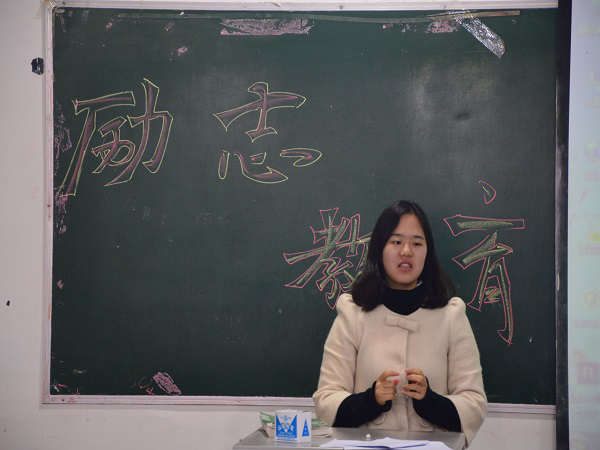 励志
教育